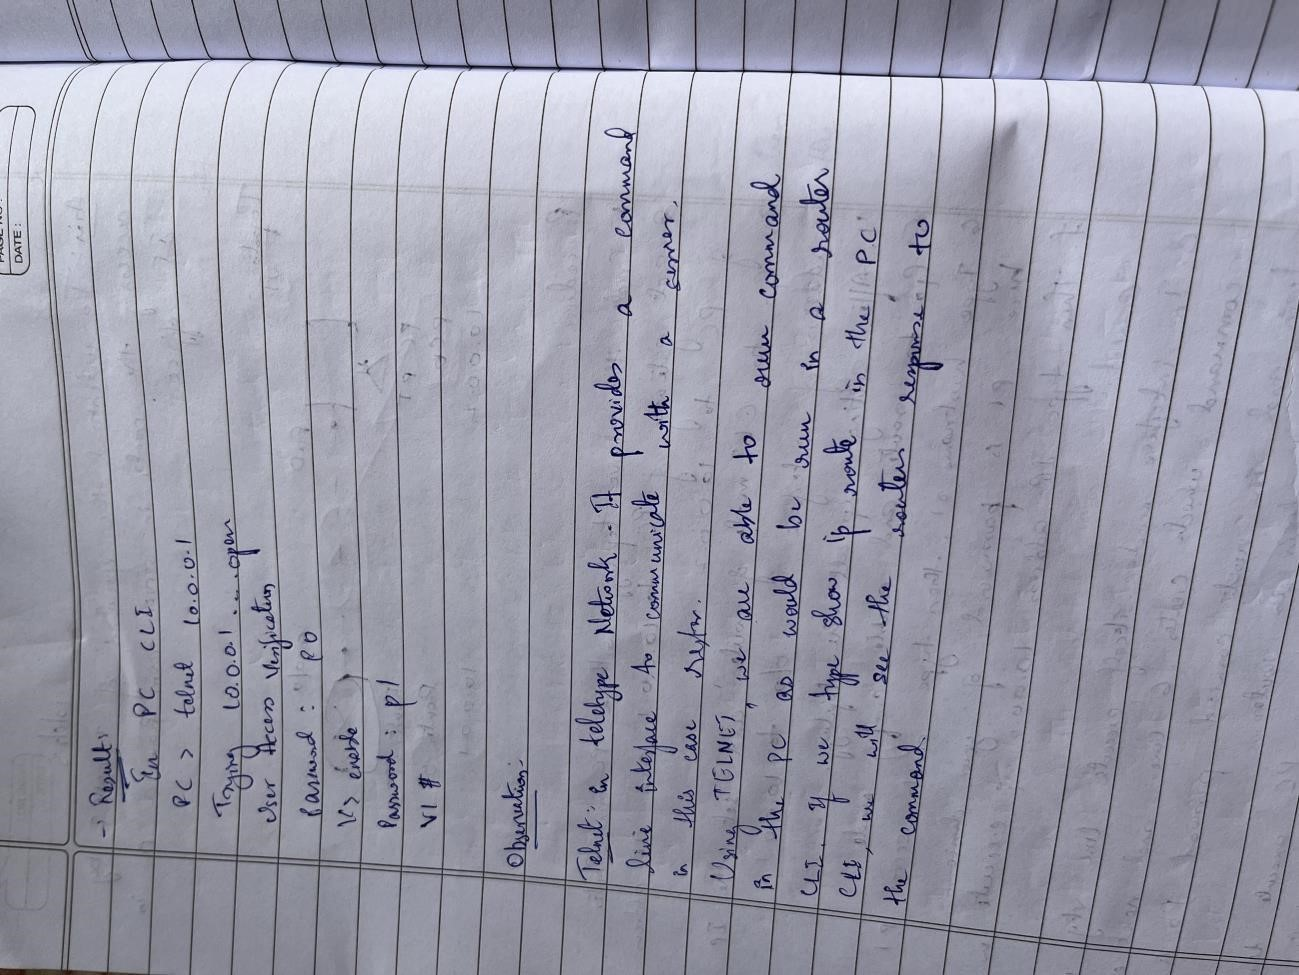 PAGE NO:
DATE:
→ Result:
In PC CLI
PC > telnet 10.0.0.1
Trying 10.0.0.1 ..... open
User Access Verification
Password: p0
r> enable
Password: p1
r1 #
Observation:
Telnet: is teletype Network. It provides a command
line interface to communicate with a server,
in this case
Using TELNET, we are able to run command
in the PC as would be run in a router
CLI. If we type show ip route in the PC
CLI, we will see the routers response to
the command.